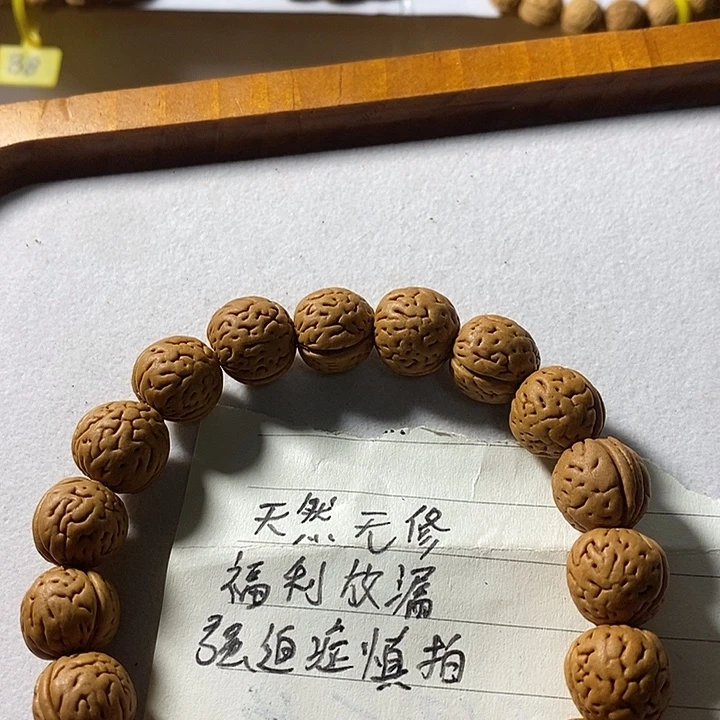 38
天然无修
福利放漏
强迫症慎拍